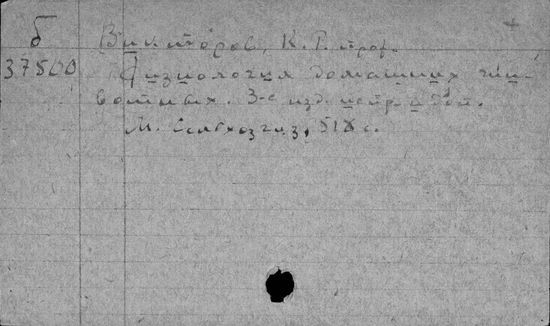 б
37500
Викторов, К. Р. проф.
Физиология домашних жи-
вотных. 3-е изд. испр. и доп.
М. Сельхозгиз, 518 с.